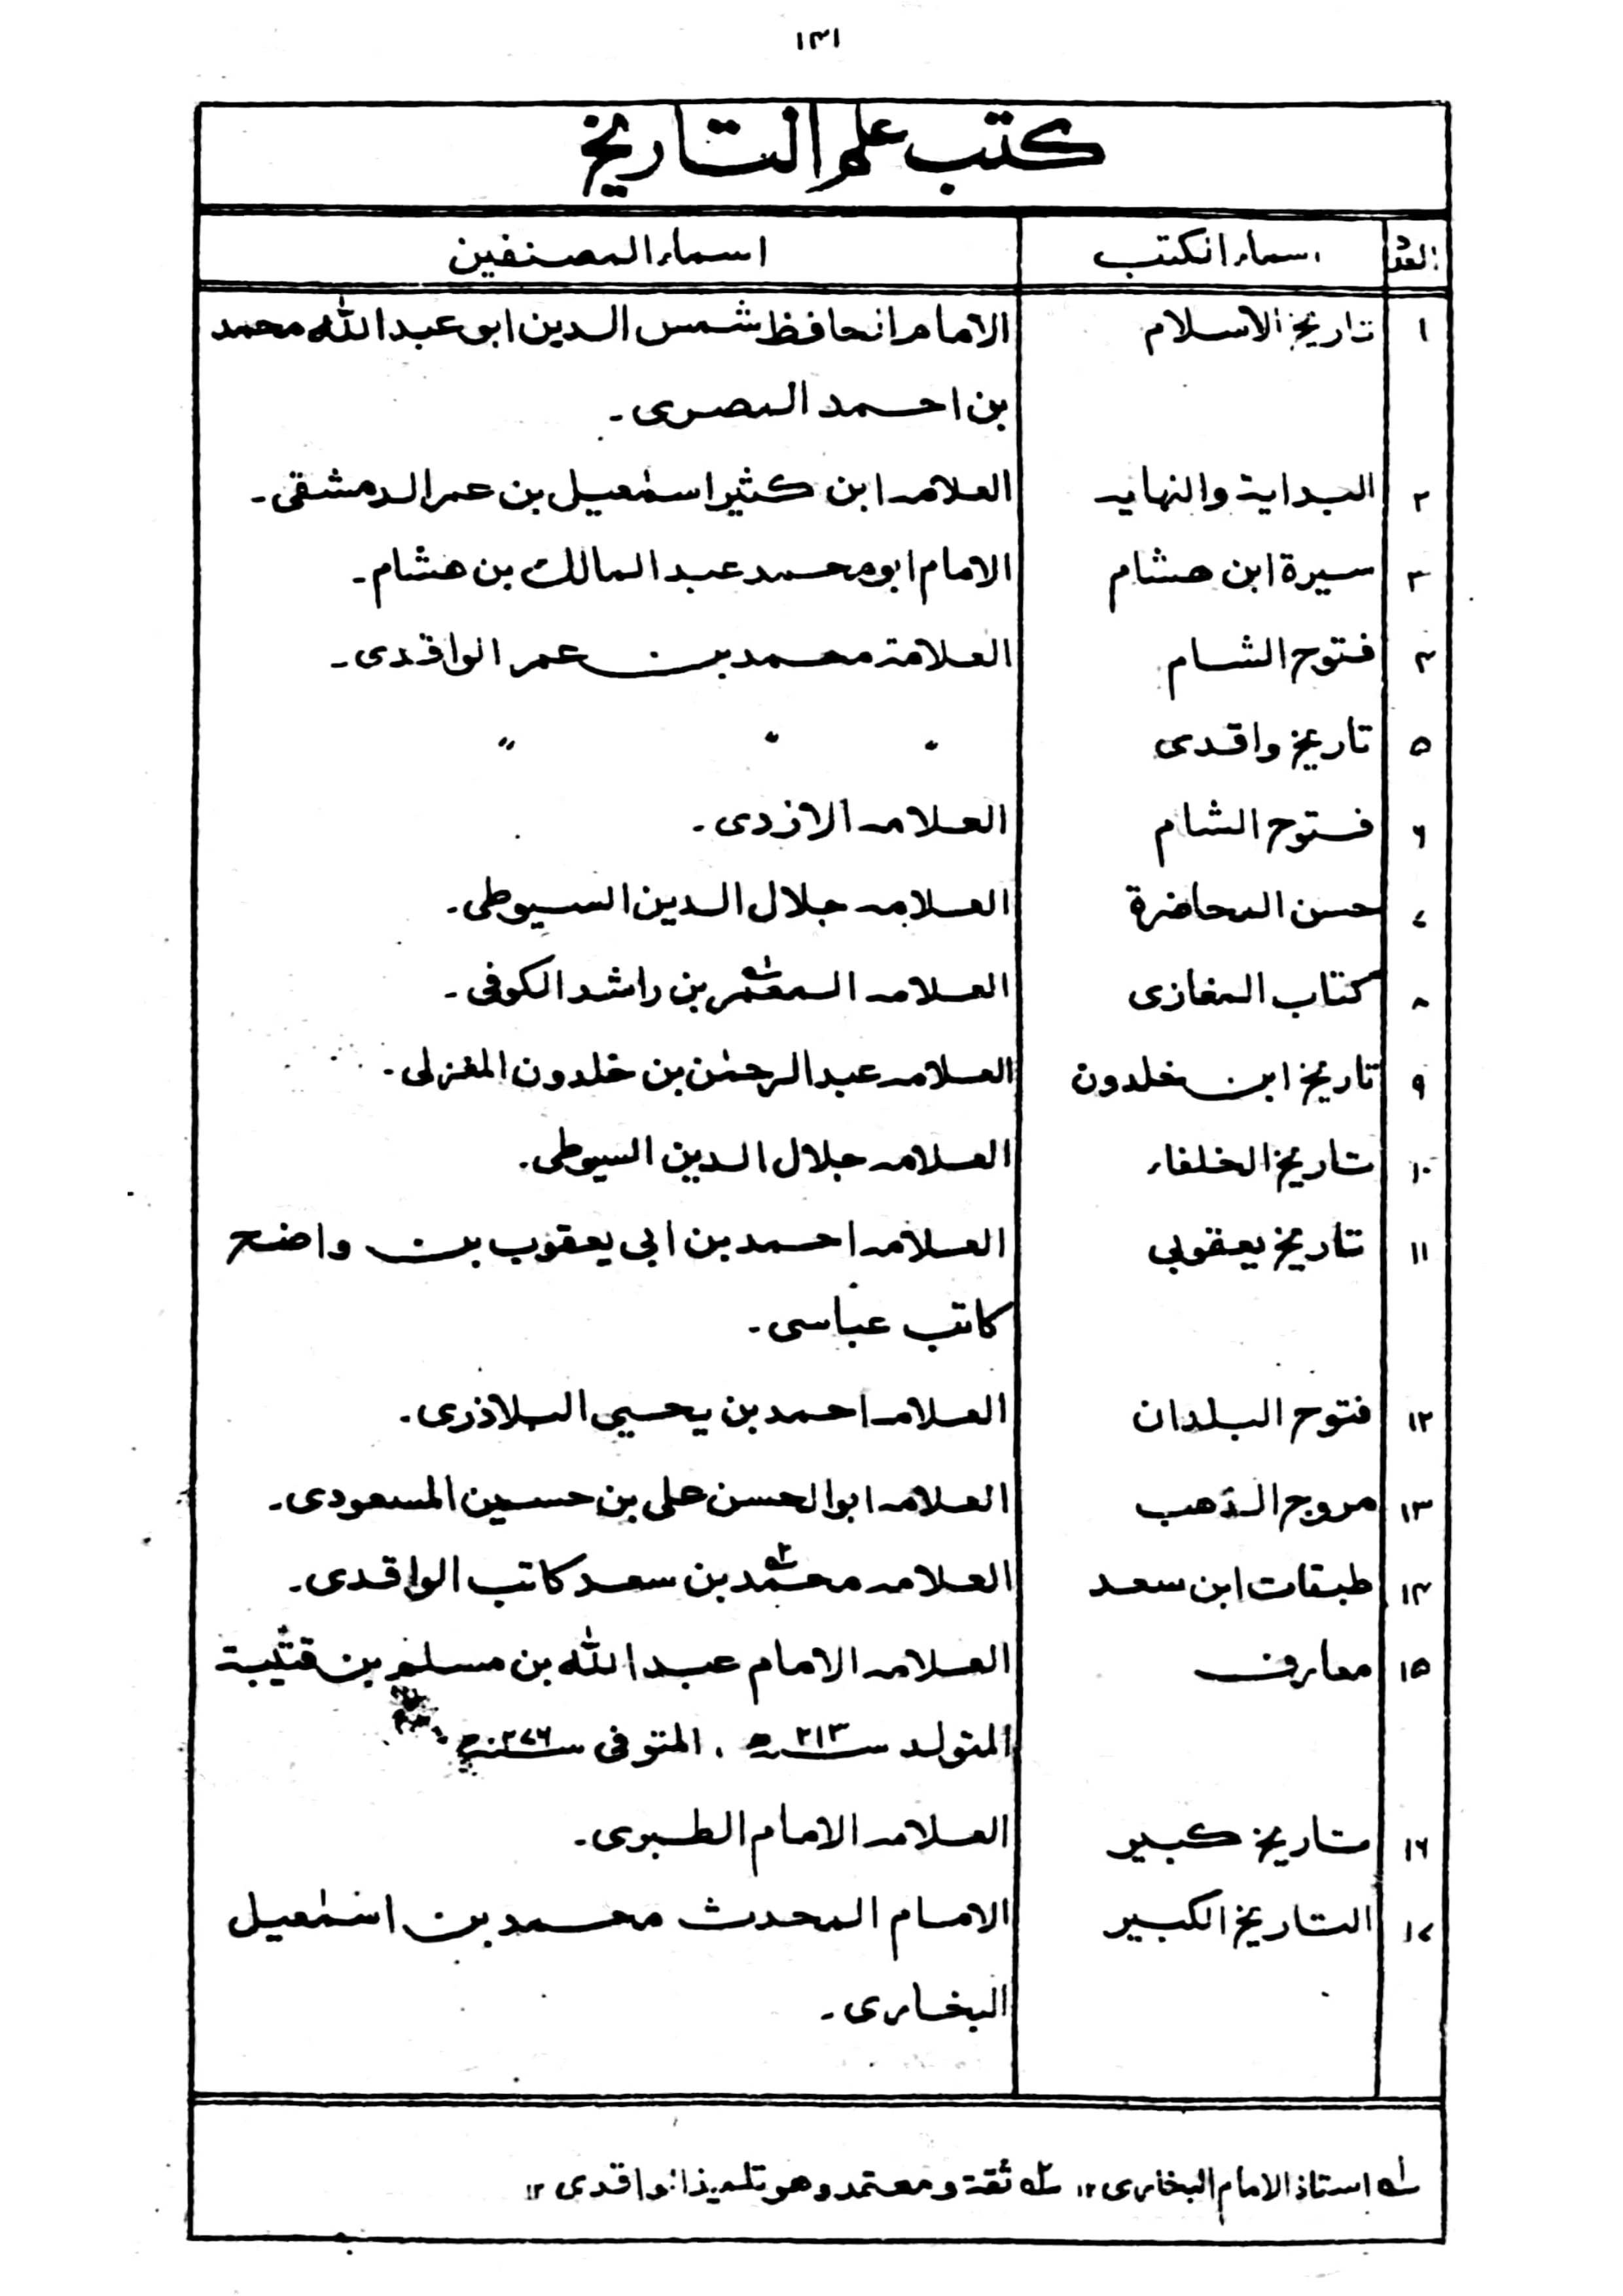 ۱۳۱
كتب علم التاريخ
العدد اسماء الكتب اسماء المصنفين
۱ تاريخ الاسلام الامام الحافظ شمس الدين ابو عبد الله محمد
بن احمد المصرى۔
۲ البداية والنهايه العلامه ابن كثير اسمٰعيل بن عمر الدمشقى۔
۳ سيرة ابن هشام الامام ابو محمد عبد المالك بن هشام۔
۴ فتوح الشام العلامة محمد بن عمر الواقدى۔
۵ تاريخ واقدى " " "
۶ فتوح الشام العلامه الازدى۔
۷ حسن المحاضرة العلامه جلال الدين السيوطى۔
۸ كتاب المغازى العلامه المعمر۱ بن راشد الكوفى۔
۹ تاريخ ابن خلدون العلامه عبد الرحمٰن بن خلدون المغزلى۔
۱۰ تاريخ الخلفاء العلامه جلال الدين السيوطى۔
۱۱ تاريخ يعقوبى العلامه احمد بن ابى يعقوب بن واضح
كاتب عباسى۔
۱۲ فتوح البلدان العلامه احمد بن يحيي البلاذرى۔
۱۳ مروج الذهب العلامه ابو الحسن على بن حسين المسعودى۔
۱۴ طبقات ابن سعد العلامه محمد۲ بن سعد كاتب الواقدى۔
۱۵ معارف العلامه الامام عبد الله بن مسلم بن قتيبة
المتولد سنه ۲۱۳ه ، المتوفى سنه ۲۷۶ه
۱۶ تاريخ كبير العلامه الامام الطبرى۔
۱۷ التاريخ الكبير الامام المحدث محمد بن اسمٰعيل
البخارى۔
۱؎ استاذ الامام البخارى ۱۲ ۲؎ ثقة ومعتمد وهو تلميذ الواقدى ۱۲